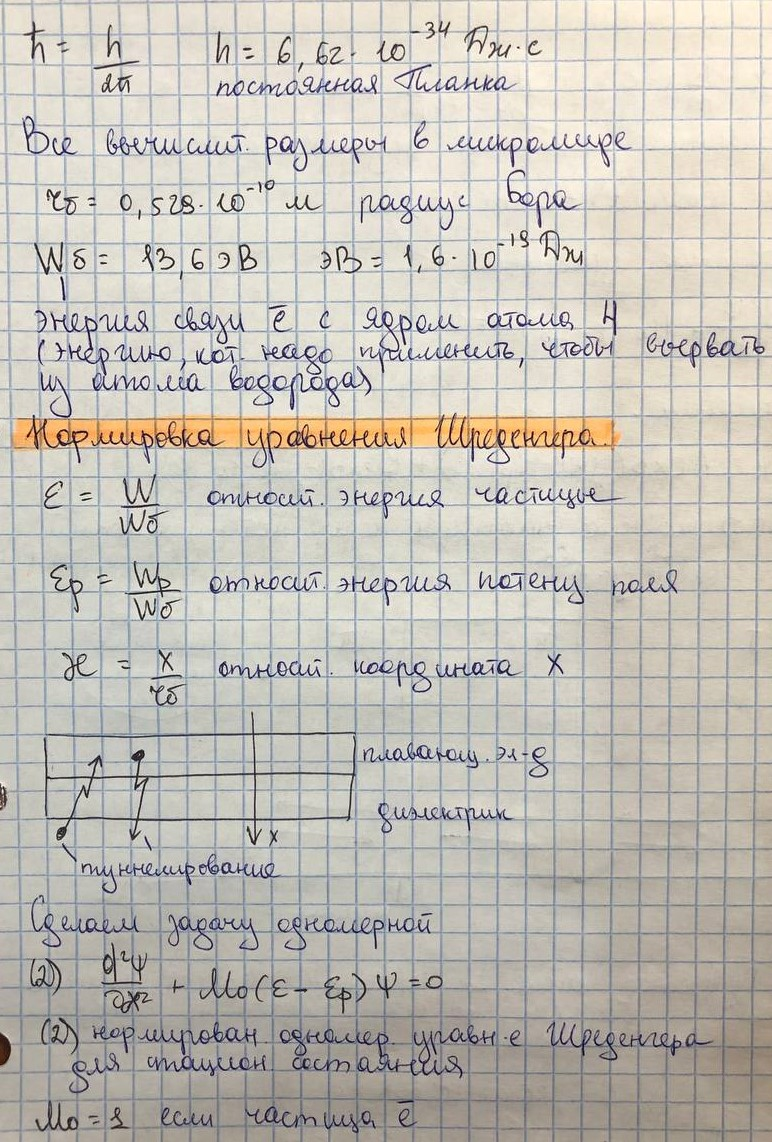 ħ = h/2π    h = 6,62·10⁻³⁴ Дж·с
постоянная Планка
Все вычислит. размеры в микромире
rб = 0,529·10⁻¹⁰ м    радиус Бора
Wб = 13,6 эВ    эВ = 1,6·10⁻¹⁹ Дж
энергия связи ē с ядром атома H
(энергию, кот. надо применить, чтобы вырвать
из атома водорода)
Нормировка уравнения Шреденгера.
ε = W/Wб    относит. энергия частицы
εp = Wp/Wб    относит. энергия потенц. поля
ϰ = x/rб    относит. координата x
плавающ. эл-д
диэлектрик
x
туннелирование
Сделаем задачу одномерной
(2)    d²ψ/dϰ² + Mo(ε - εp)ψ = 0
(2) нормирован. одномер. уравн-е Шреденгера
для стацион. состаяния
Mo = 1 если частица ē